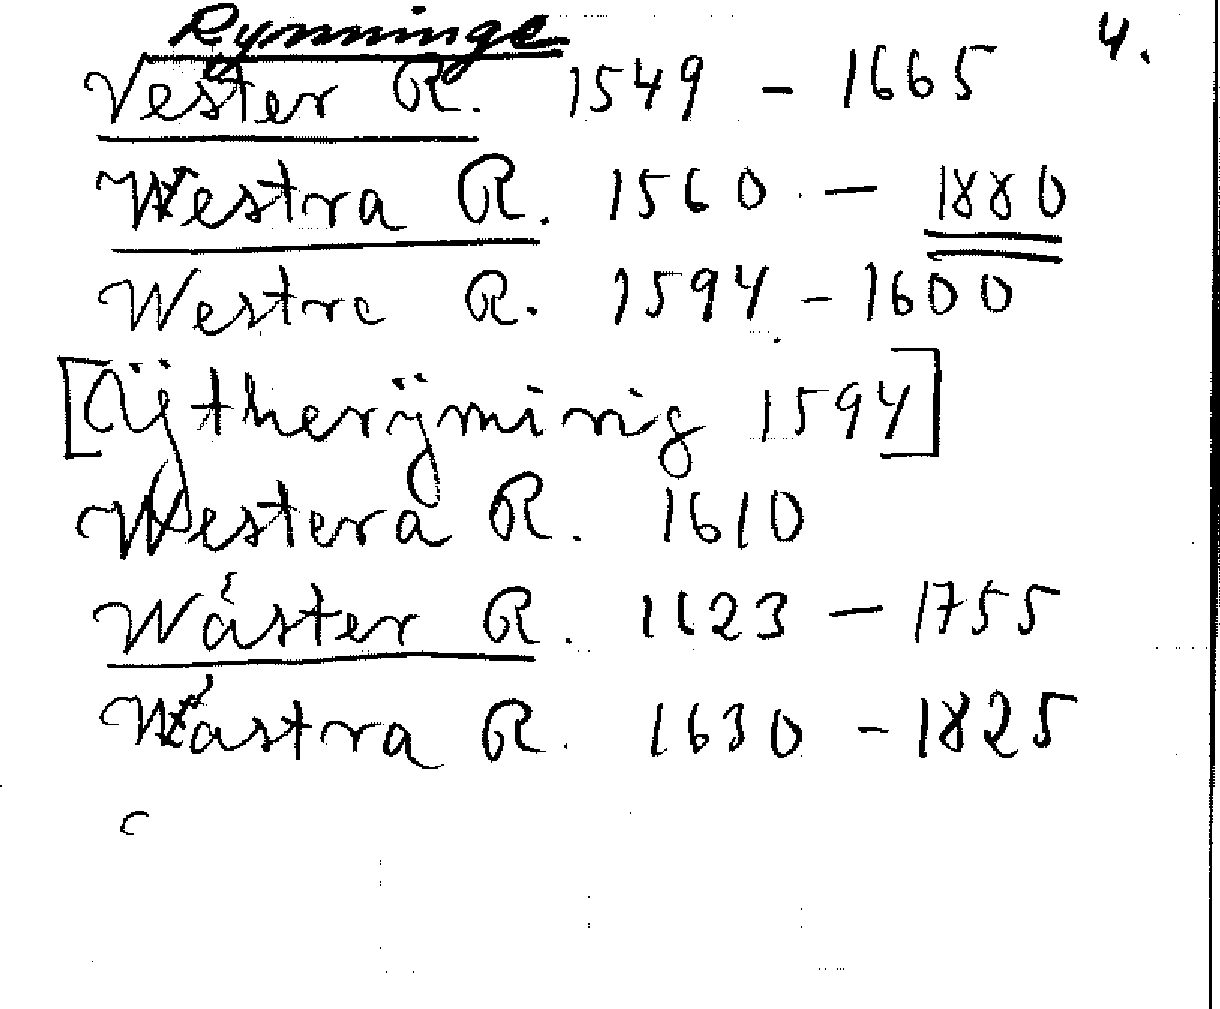 Rynninge 4.
Vester R. 1549 - 1665
Westra R. 1560 - 1880
Westre R. 1594 - 1600
[Üjtherÿming 1594]
Westera R. 1610
Wäster R. 1623 - 1755
Wästra R. 1630 - 1825